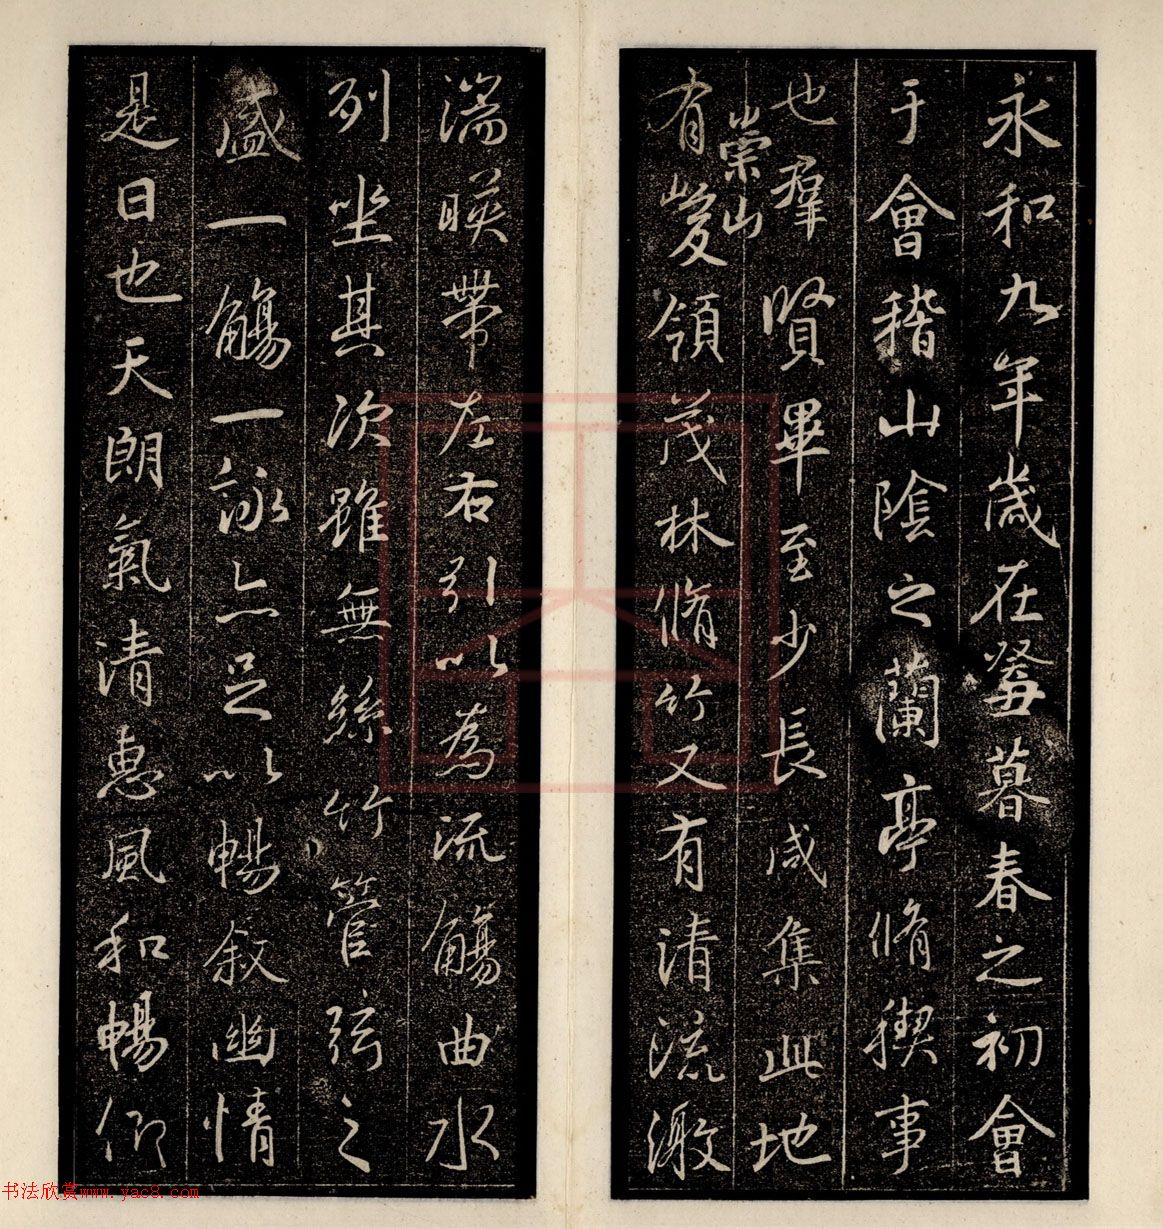 永和九年歲在癸丑暮春之初會
于會稽山陰之蘭亭脩稧事
也群賢畢至少長咸集此地
崇山
有峻領茂林脩竹又有清流激
湍暎帶左右引以為流觴曲水
列坐其次雖無絲竹管弦之
盛一觴一詠亦足以暢敘幽情
是日也天朗氣清惠風和暢仰
书法欣赏www.yac8.com